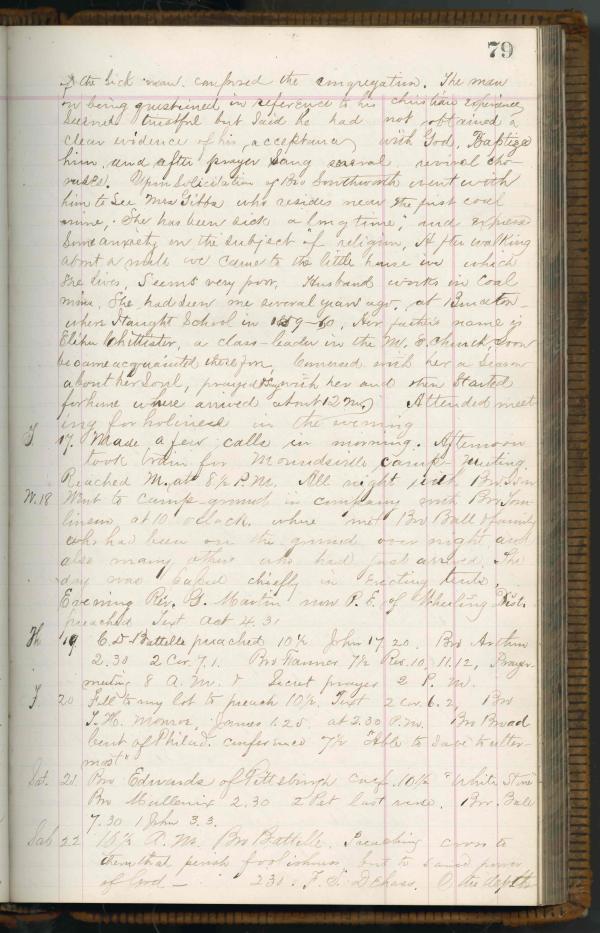 79
& the sick man composed the congregation. The man
on being questioned in reference to his christian experience
seemed trustful but said he had not obtained a
clear evidence of his acceptance with God. Baptized
him, and after prayer sang several revival cho-
ruses. Upon solicitation of Bro Southworth went with
him to see Mrs Gibbs who resides near the first coal
mine. She has been sick a long time, and express
some anxiety on the subject of religion. After walking
about a mile we came to the little house in which
she lives. Seems very poor. Husband works in coal
mine. She had seen me several years ago, at
where I taught School in 1859-60. Her father's name is
Elihu Chittister, a class-leader in the M. E. Church, soon
became acquainted therefore, Conversed with her a season
about her soul, prayed & sang with her and then started
for home where arrived about 12 M. Attended meet
ing for holiness in the evening
T 17. Made a few calls in morning. Afternoon
took train for Moundsville camp-meeting.
Reached M. at 8 1/2 P.M. All night with Bro
W. 18 Went to camp-ground in company with Bro Tom
linson at 10 oclock. where met Bro Ball & family
who had been on the ground over night and
also many others who had just arrived. The
day was chiefly in erecting tents,
Evening Rev. G. Martin now P. E. of Wheeling Dist.
preached Text Act 4.31
Th 19 C. D. Battelle preached 10 1/2 John 17.20. Bro Arthur
2.30 2 Cor. 7.1. Bro Fanner 7 1/2 Rev. 10. 11.12, Prayer-
meeting 8 A. M. & Secret prayer 2 P. M.
F. 20 Fell to my lot to preach 10 1/2. Text 2 Cor. 6.2, Bro
T. H. Monroe. James 1.25. at 2.30 P.M. Bro Broad
bent of Philad. conference 7 1/2 "Able to save to utter-
most"
Sat. 21 Bro Edwards of Pittsburgh conf. 10 1/2 "White Stone"
Bro Mullenix 2.30 2 Pet last verse. Bro. Ball
7.30 1 John 3.3.
Sab 22 10 1/2 A. M. Bro Battelle. Preaching cross to
them that perish foolishness but to saved power
of God — 2 30. F. S. DeHass. O the depths